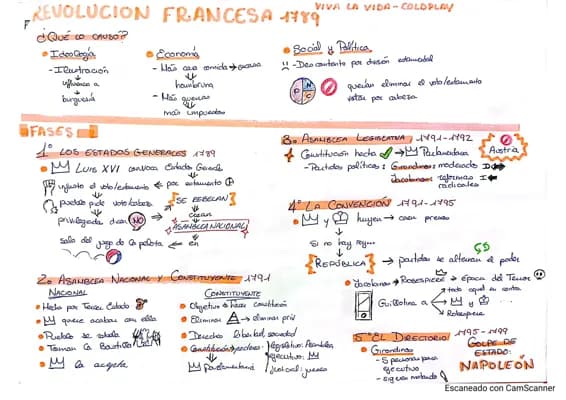 REVOLUCION FRANCESA 1789
VIVA LA VIDA - COLDPLAY
¿Qué lo causó?
Ideología
- Ilustración
influencia a
burguesía
Economía
- Más
hambruna
- Más guerras
más impuestos
Social y Política
- Descontento por división estamental
P N C
querían eliminar el voto/estamento
votar por cabeza
FASES
1º LOS ESTADOS GENERALES 1789
LUIS XVI convoca Estados Generales
injusto el voto/estamento
pueblo pide voto/cabeza
privilegiada dicen NO
SE REBELAN
crean
ASAMBLEA NACIONAL
Sala del juego de la pelota en
2º ASAMBLEA NACIONAL Y CONSTITUYENTE 1791
NACIONAL
Hecha por Tercer Estado
quiere acabar con ella
Pueblo se rebela
Toman la Bastilla
la acepta
CONSTITUYENTE
Objetivo → hacer constitución
Eliminar A → eliminar priv
Derecho libertad, sociedad
Constitución
legislativo: Asamblea
ejecutivo:
judicial: jueces
Parlamentaria
3º ASAMBLEA LEGISLATIVA 1791-1792
Constitución hecha → Parlamentaria
Austria
- Partidos políticos: Girondinos: moderado D
Jacobinos: reformas I
radicales
4º LA CONVENCIÓN 1791-1795
y huyen → caen presos
Si no hay rey...
REPÚBLICA → partidos se alternan el poder
Jacobinos → ROBESPIERRE → época del Terror
todo aquel en contra
Guillotina a y
Robespierre
5º EL DIRECTORIO 1795-1799
Girondinos
- 5 personas para
ejecutivo
- sigue
GOLPE DE
ESTADO:
NAPOLEÓN
Escaneado con CamScanner